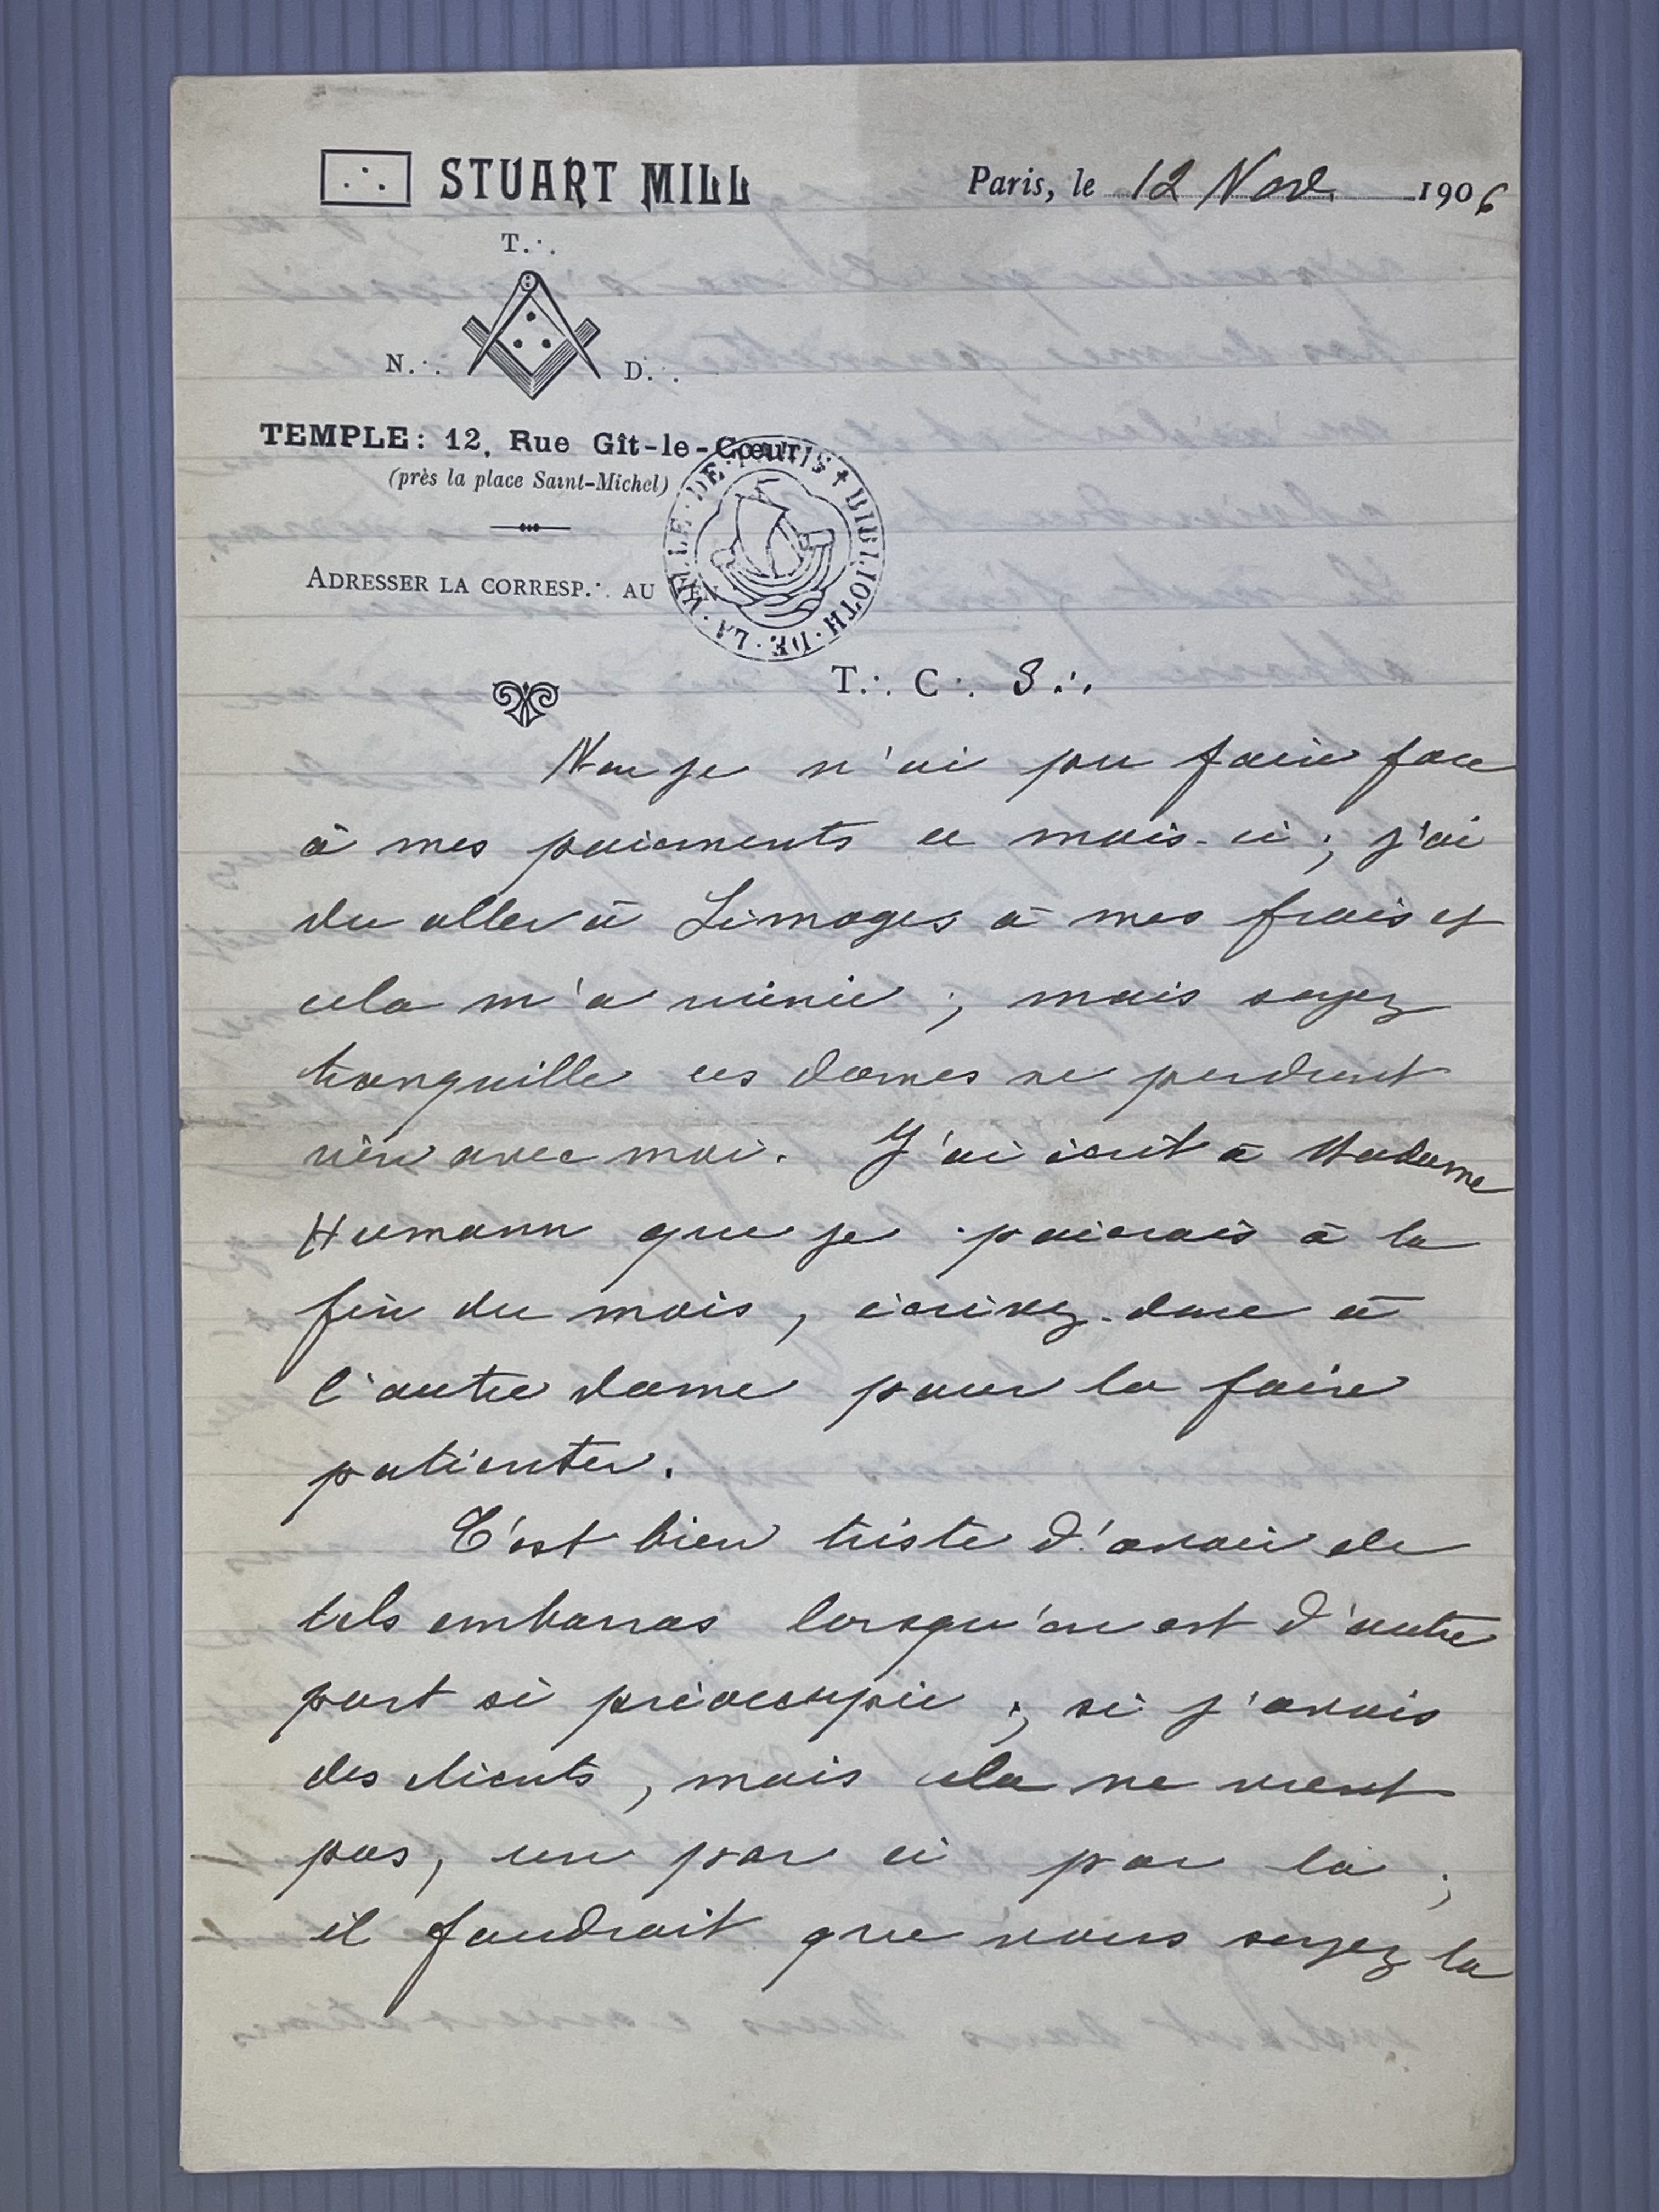 ∴ STUART MILL
Paris, le 12 Nov. 1906
T∴
N∴ D∴
TEMPLE: 12, Rue Gît-le-Cœur
(près la place Saint-Michel)
ADRESSER LA CORRESP∴ AU VÉN∴
BIBLIOTH·DE·LA·VILLE·DE·PARIS
T∴ C∴ S∴
Non je n'ai pu faire face
à mes paiements ce mois-ci ; j'ai
du aller à Limoges à mes frais et
cela m'a ruinée ; mais soyez
tranquille ces dames ne perdront
rien avec moi. J'ai écrit à Madame
Humann que je paierais à la
fin du mois, écrivez-donc à
l'autre dame pour la faire
patienter.
C'est bien triste d'avoir de
tels embarras lorsqu'on est d'autre
part si préoccupée ; si j'avais
des clients, mais cela ne vient
pas, un par ci par là ;
il faudrait que vous soyez là